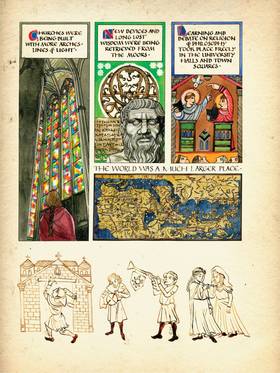 CHURCHES WERE
BEING BUILT
WITH MORE ARCHES -
LINES & LIGHT -
NEW DEVICES AND
LONG LOST
WISDOM WERE BEING
RETRIEVED FROM
THE MOORS -
LEARNING AND
DEBATE ON RELIGION
& PHILOSOPHY
TOOK PLACE FREELY
IN THE UNIVERSITY
HALLS AND TOWN
SQUARES -
THE WORLD WAS A MUCH LARGER PLACE -